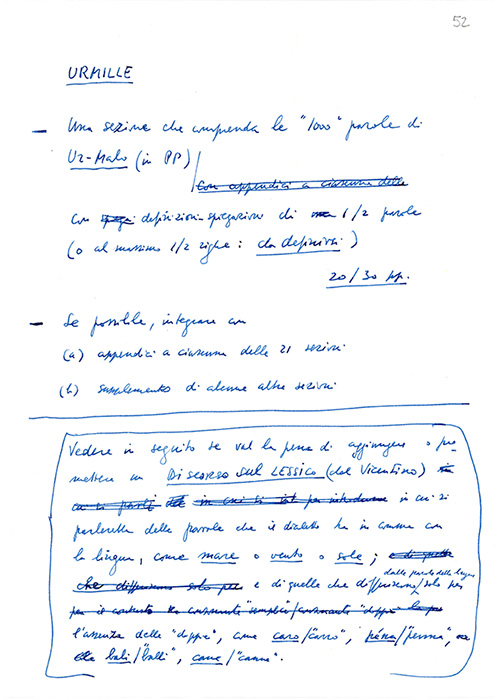 52
URMILLE
— Una sezione che comprenda le "1000" parole di
UR-Malo (in PP)
Con appendici a ciascuna delle
con definizioni-spiegazioni di 1/2 parole
(o al massimo 1/2 righe: da definirsi)
20/30 pp.
— Se possibile, integrare con
(a) appendici a ciascuna delle 21 sezioni
(b) supplemento di alcune altre sezioni
Vedere in seguito se val la pena di aggiungere o pre-
mettere un DISCORSO SUL LESSICO (del Vicentino)
in cui si
parlerebbe delle parole che il dialetto ha in comune con
la lingua, come mare o vento o sole; e di quelle
dalle parole della lingua
che differiscono solo per e di quelle che differiscono / solo per
per il contrasto tra consonanti "semplici"/consonanti "doppie"
l'assenza delle "doppie", come caro/"carro", péna/"penna",
bali/"balli", cane/"canne".